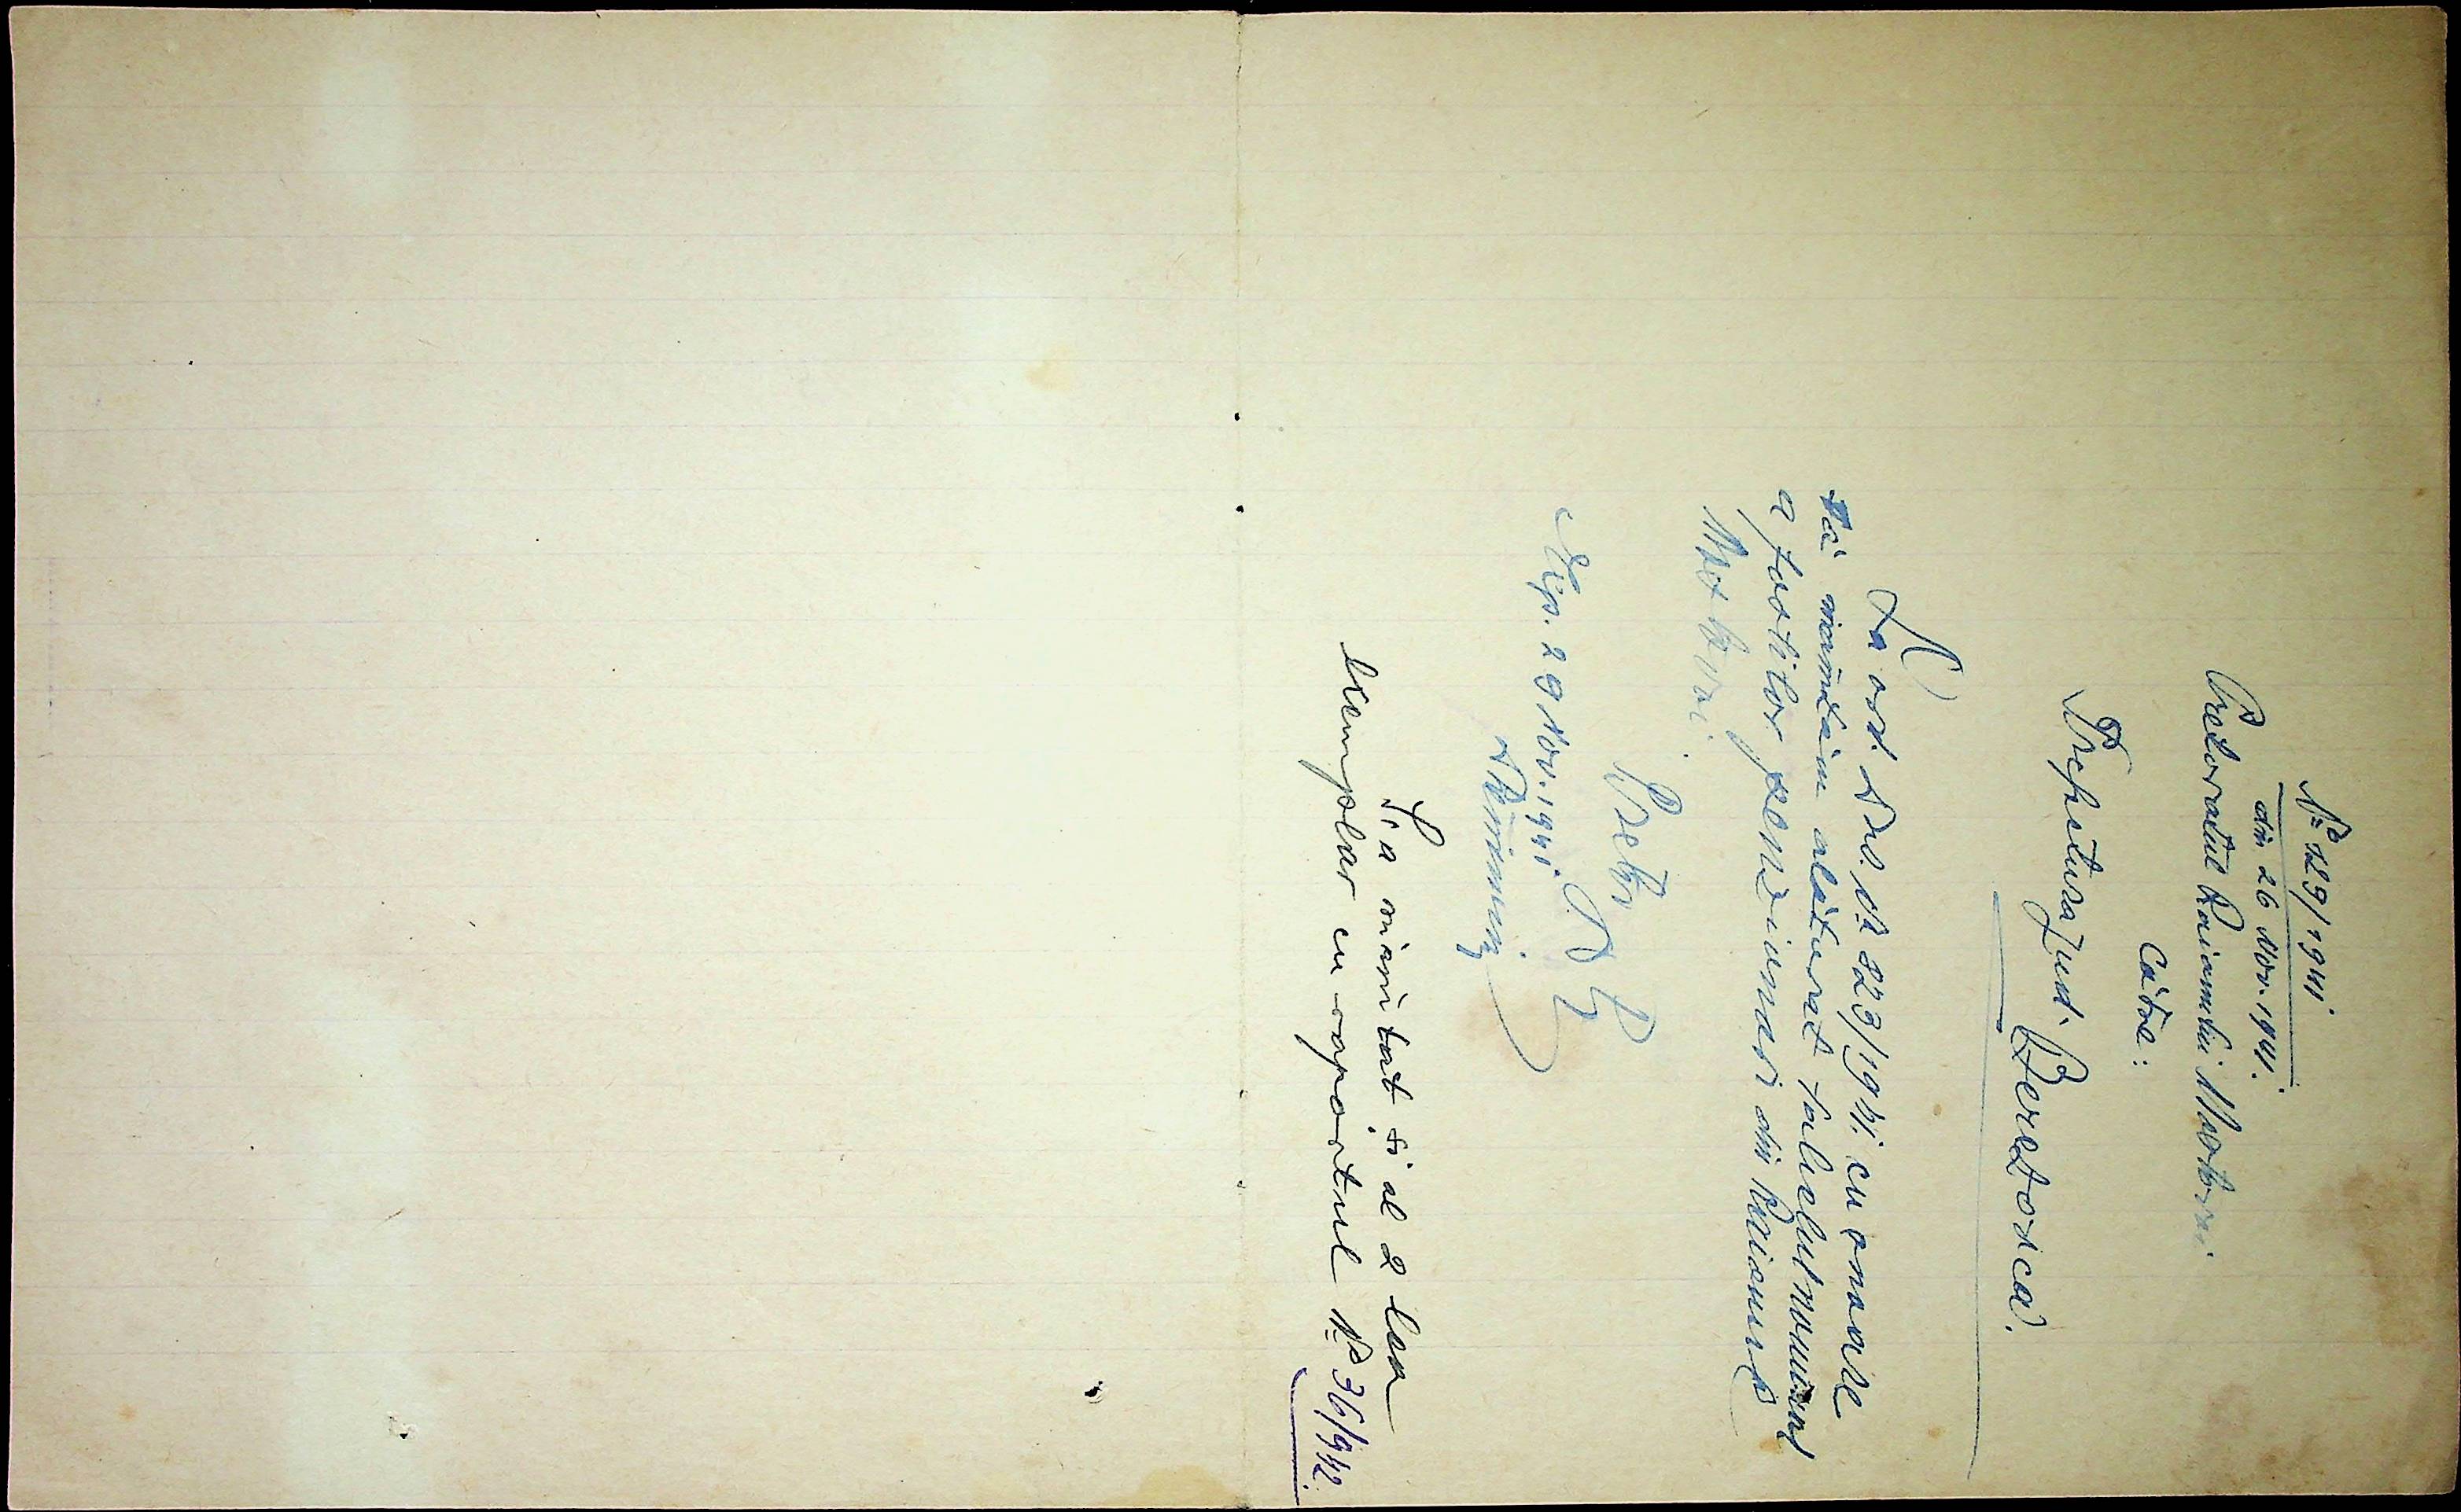 № 129/1941
din 26 Nov. 1941.
Pretoratul Raionului Mostovoi
Către:
Prefectura Jud. Berezovca.
La ord. Dvs. № 223/1941 cu onoare
Vă înaintăm alăturat tabelul nominal
a fostilor pensiunari din Raionul
Mostovoi.
Pretor
Exp. 29 Nov. 1941.
S'a înaintat și al 2 lea
exemplar cu raportul № 36/942.